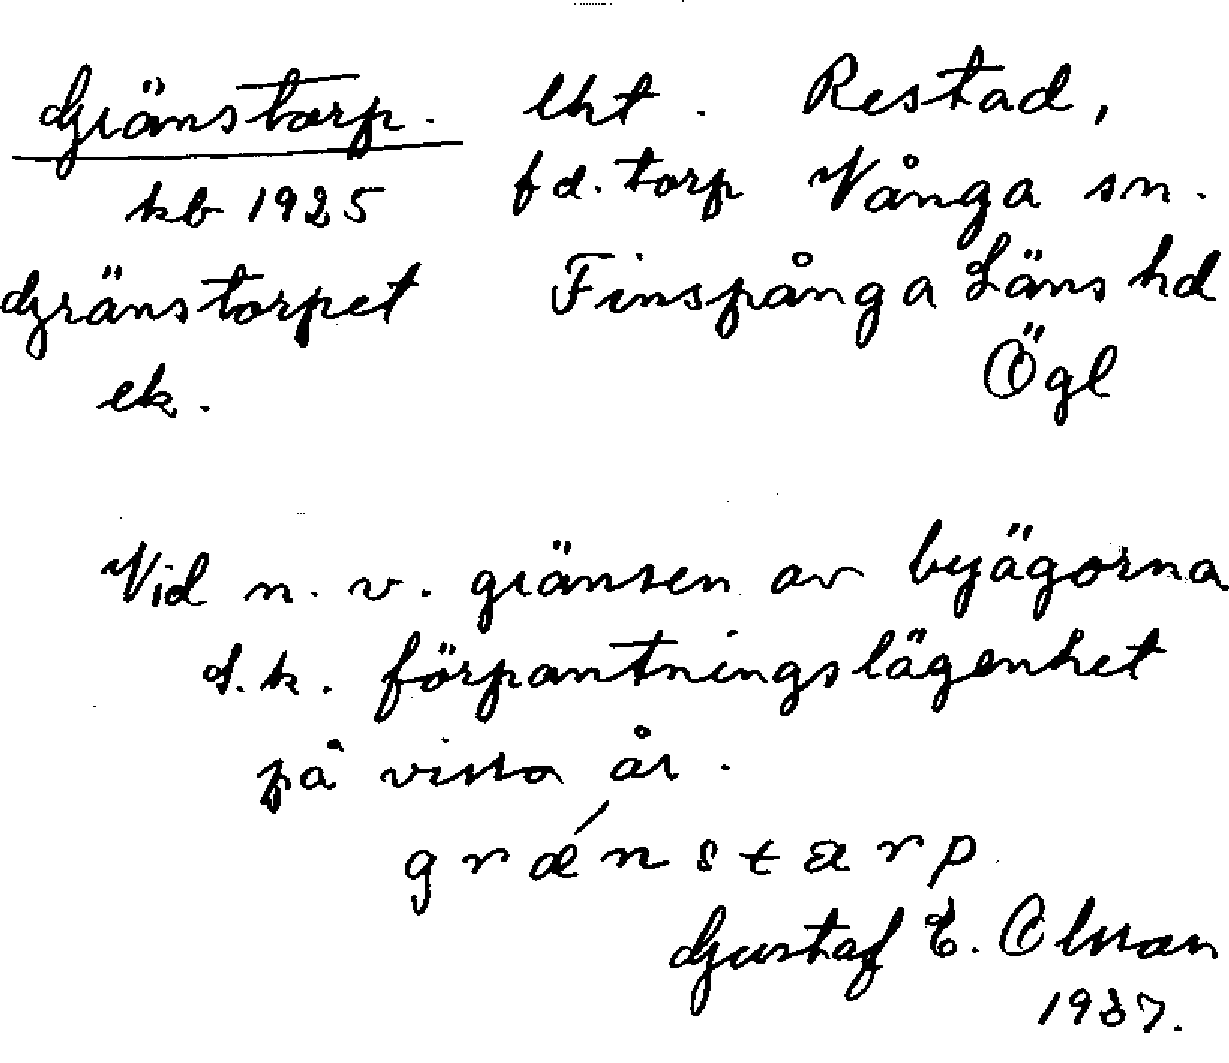 Gränstorp. lht. Restad,
kb 1925 fd. torp Vånga sn.
Gränstorpet Finspånga Läns hd
ek. Ögl
Vid n. v. gränsen av byägorna
s. k. förpantningslägenhet
på vissa år.
grǽnstarp
Gustaf E. Olsson
1937.